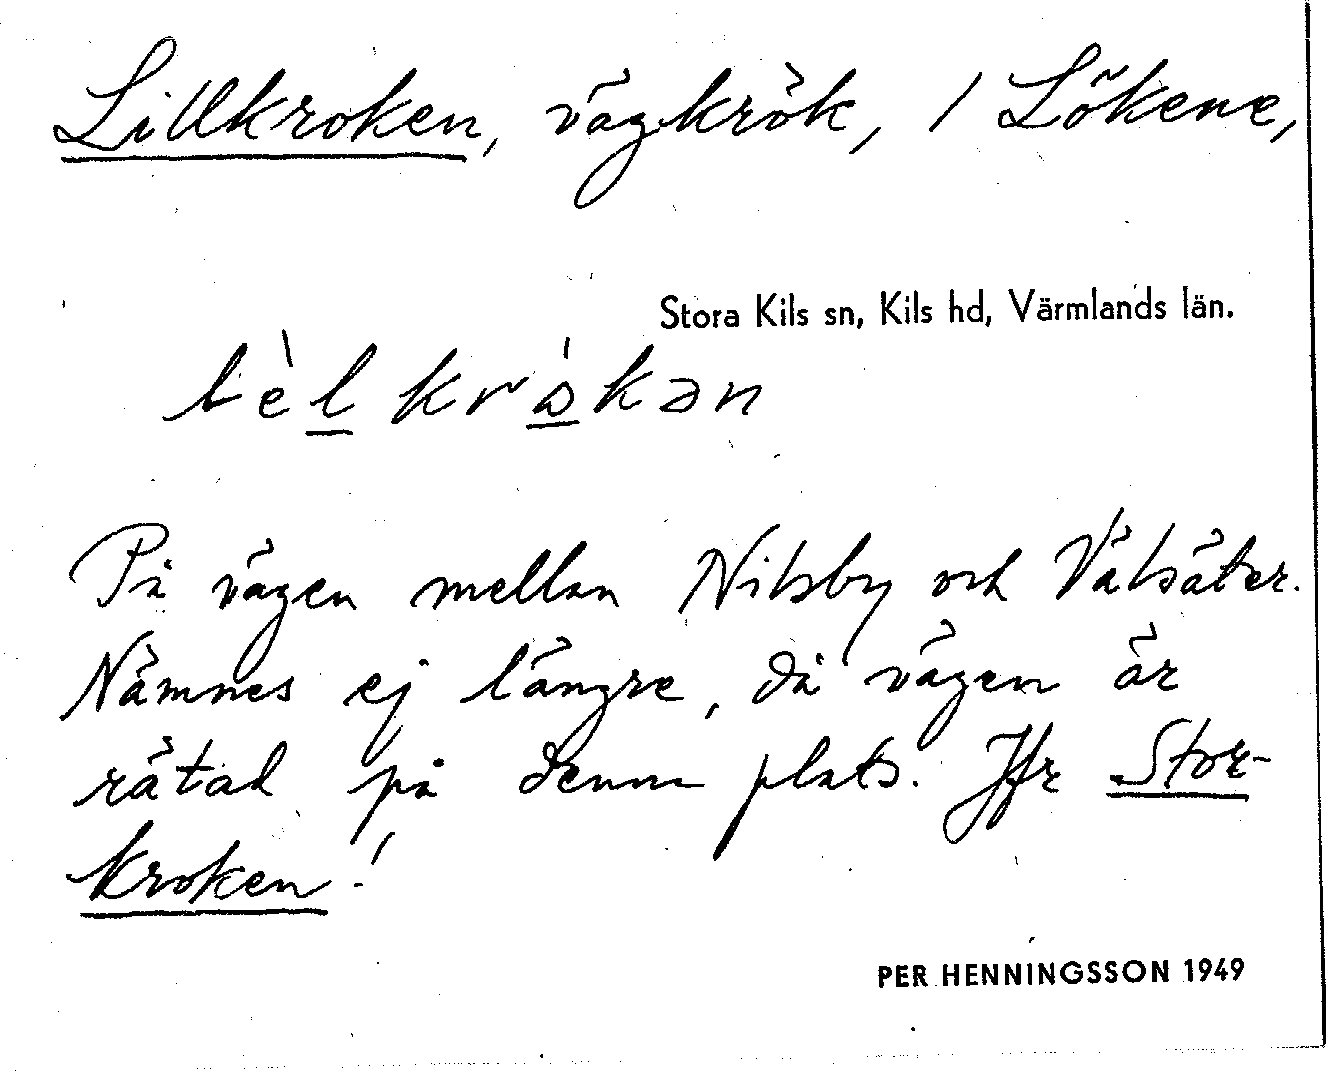 Lillkroken, vägkrök, 1 Lökene,
Stora Kils sn, Kils hd, Värmlands län.
På vägen mellan Nilsby och Vålsäter.
Nämnes ej längre, då vägen är
rätad på denna plats. Jfr Stor-
kroken!
PER HENNINGSSON 1949